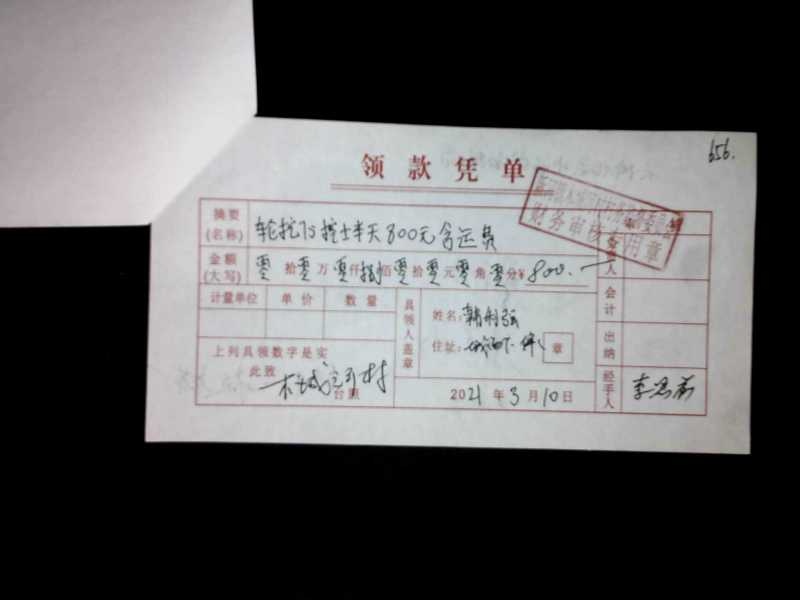 656.
领款凭单
财务审核专用章
摘要(名称) 轮挖75挖土半天800元含运员
金额(大写) 零拾零万零仟捌佰零拾零元零角零分¥800.
计量单位 单价 数量
具领人盖章
姓名:韩利强
住址: 章
上列具领数字是实
此致
台照
2021年3月10日
会计
出纳
经手人